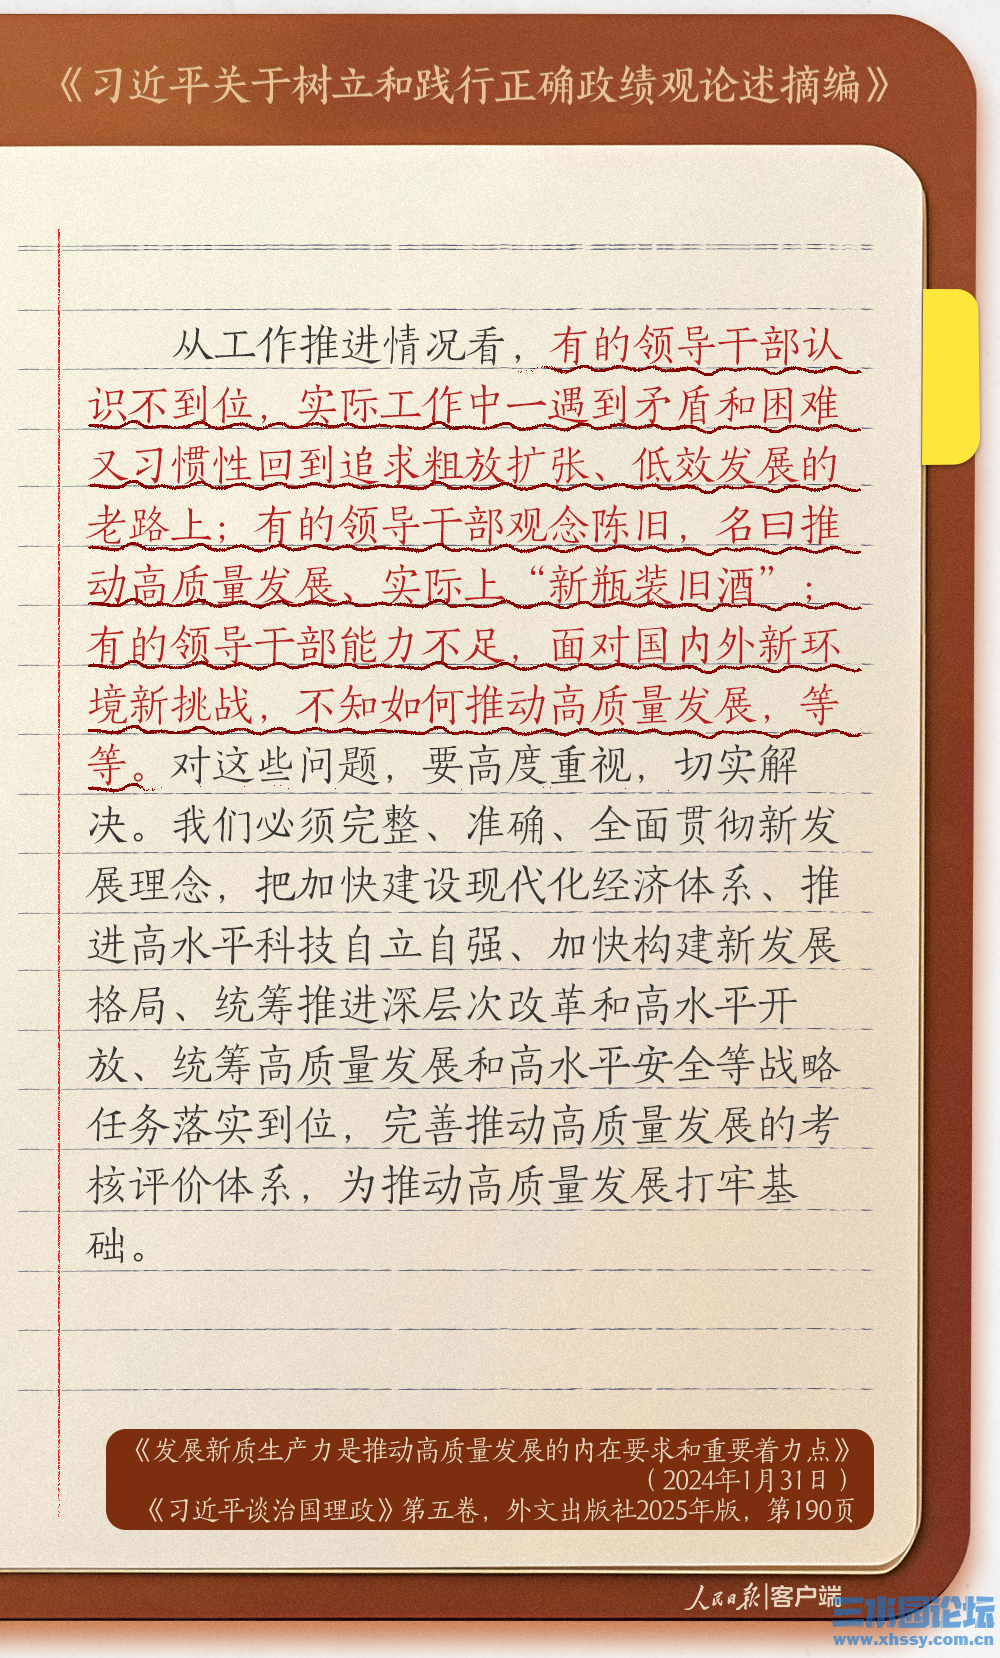 《习近平关于树立和践行正确政绩观论述摘编》
从工作推进情况看，有的领导干部认
识不到位，实际工作中一遇到矛盾和困难
又习惯性回到追求粗放扩张、低效发展的
老路上；有的领导干部观念陈旧，名曰推
动高质量发展、实际上“新瓶装旧酒”；
有的领导干部能力不足，面对国内外新环
境新挑战，不知如何推动高质量发展，等
等。对这些问题，要高度重视，切实解
决。我们必须完整、准确、全面贯彻新发
展理念，把加快建设现代化经济体系、推
进高水平科技自立自强、加快构建新发展
格局、统筹推进深层次改革和高水平开
放、统筹高质量发展和高水平安全等战略
任务落实到位，完善推动高质量发展的考
核评价体系，为推动高质量发展打牢基
础。
《发展新质生产力是推动高质量发展的内在要求和重要着力点》
（2024年1月31日）
《习近平谈治国理政》第五卷，外文出版社2025年版，第190页
人民日报|客户端
三水园论坛
www.xhssy.com.cn